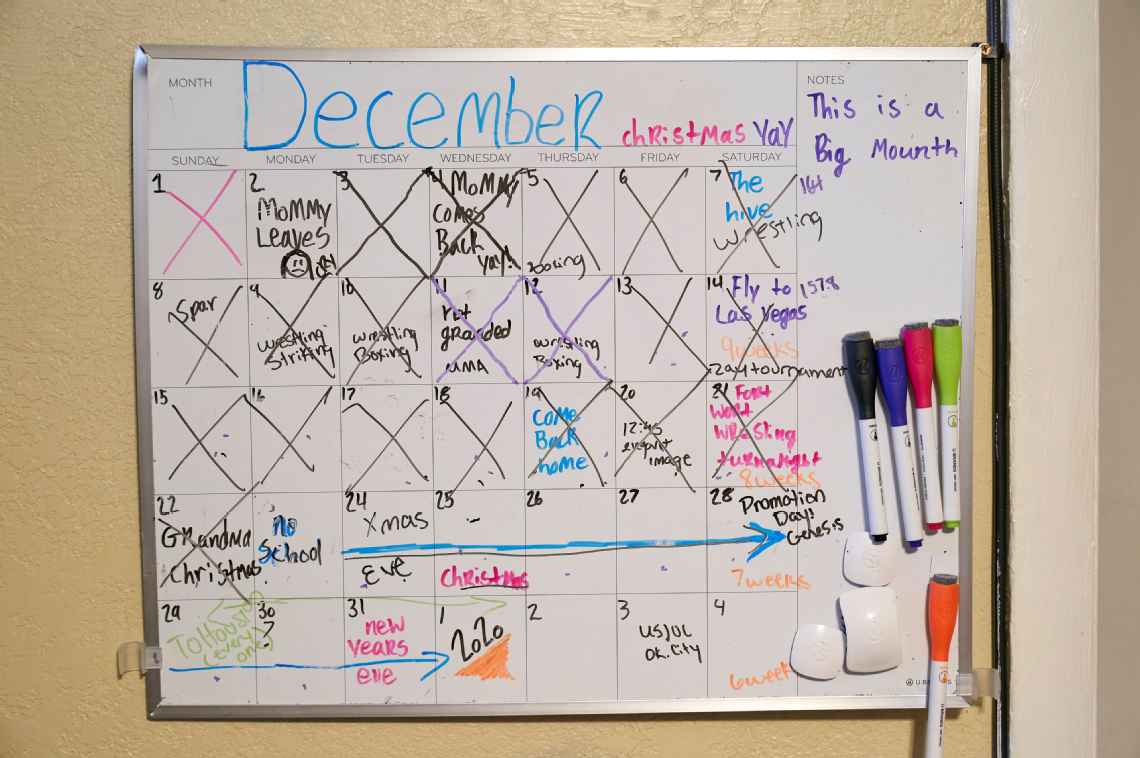 MONTH
December
christmas YaY
NOTES
This is a
Big Mounth
SUNDAY
MONDAY
TUESDAY
WEDNESDAY
THURSDAY
FRIDAY
SATURDAY
1
2
MoMMy
Leaves
3
4 MoMMy
comes
Back
yay!
5
6
7 The
hive
wrestling
8
Spar
9
wrestling
Striking
10
wrestling
Boxing
11
not
granded
UMA
12
wrestling
Boxing
13
14 Fly to
Las Vegas
9weeks
2day tournament
157.8
15
16
17
18
19
Come
Back
home
20
12:45
image
21 Fort
Wort
8weeks
22
GRandma
christmas
no
School
24
Xmas
Eve
25
christmas
26
27
28
Promotion
Day!
Genesis
7weeks
29
To Houston
(every
one)
30
?
31
new
years
eve
1
2020
2
3
US/OU
OK.City
4
6week